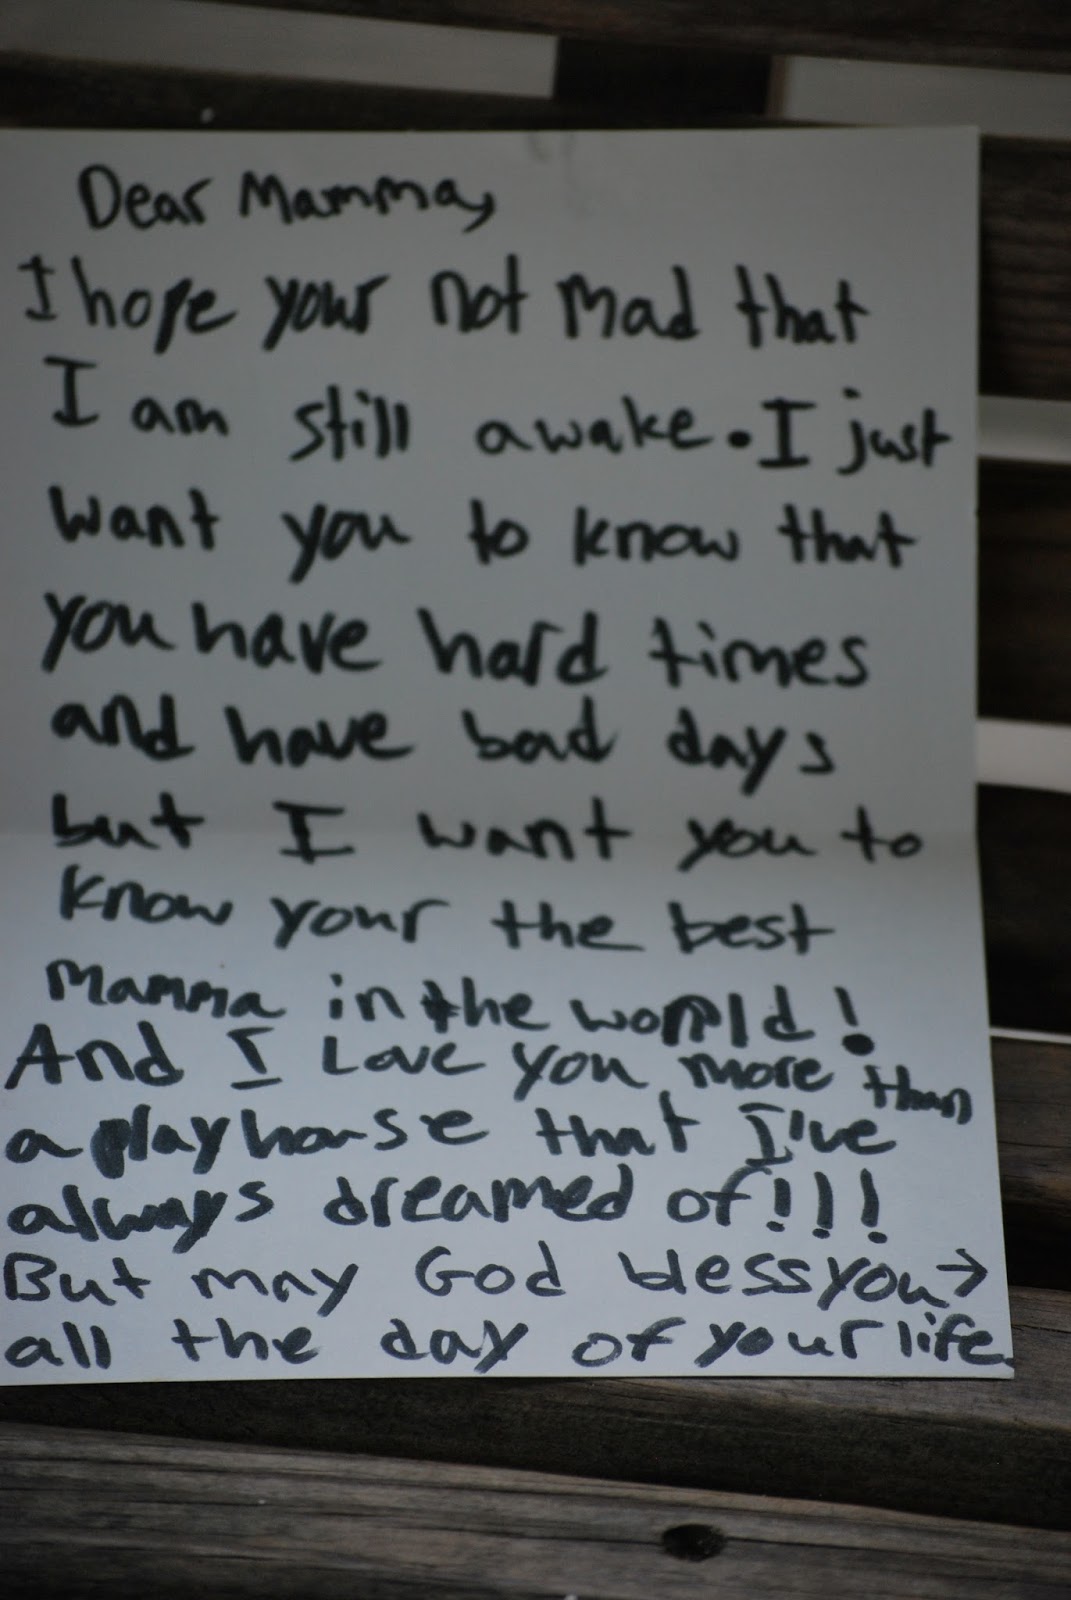 Dear Mamma,
I hope your not mad that
I am still awake. I just
want you to know that
you have hard times
and have bad days
but I want you to
know your the best
Mamma in the world!
And I Love you more than
a playhouse that I've
always dreamed of!!!
But may God bless you →
all the day of your life.